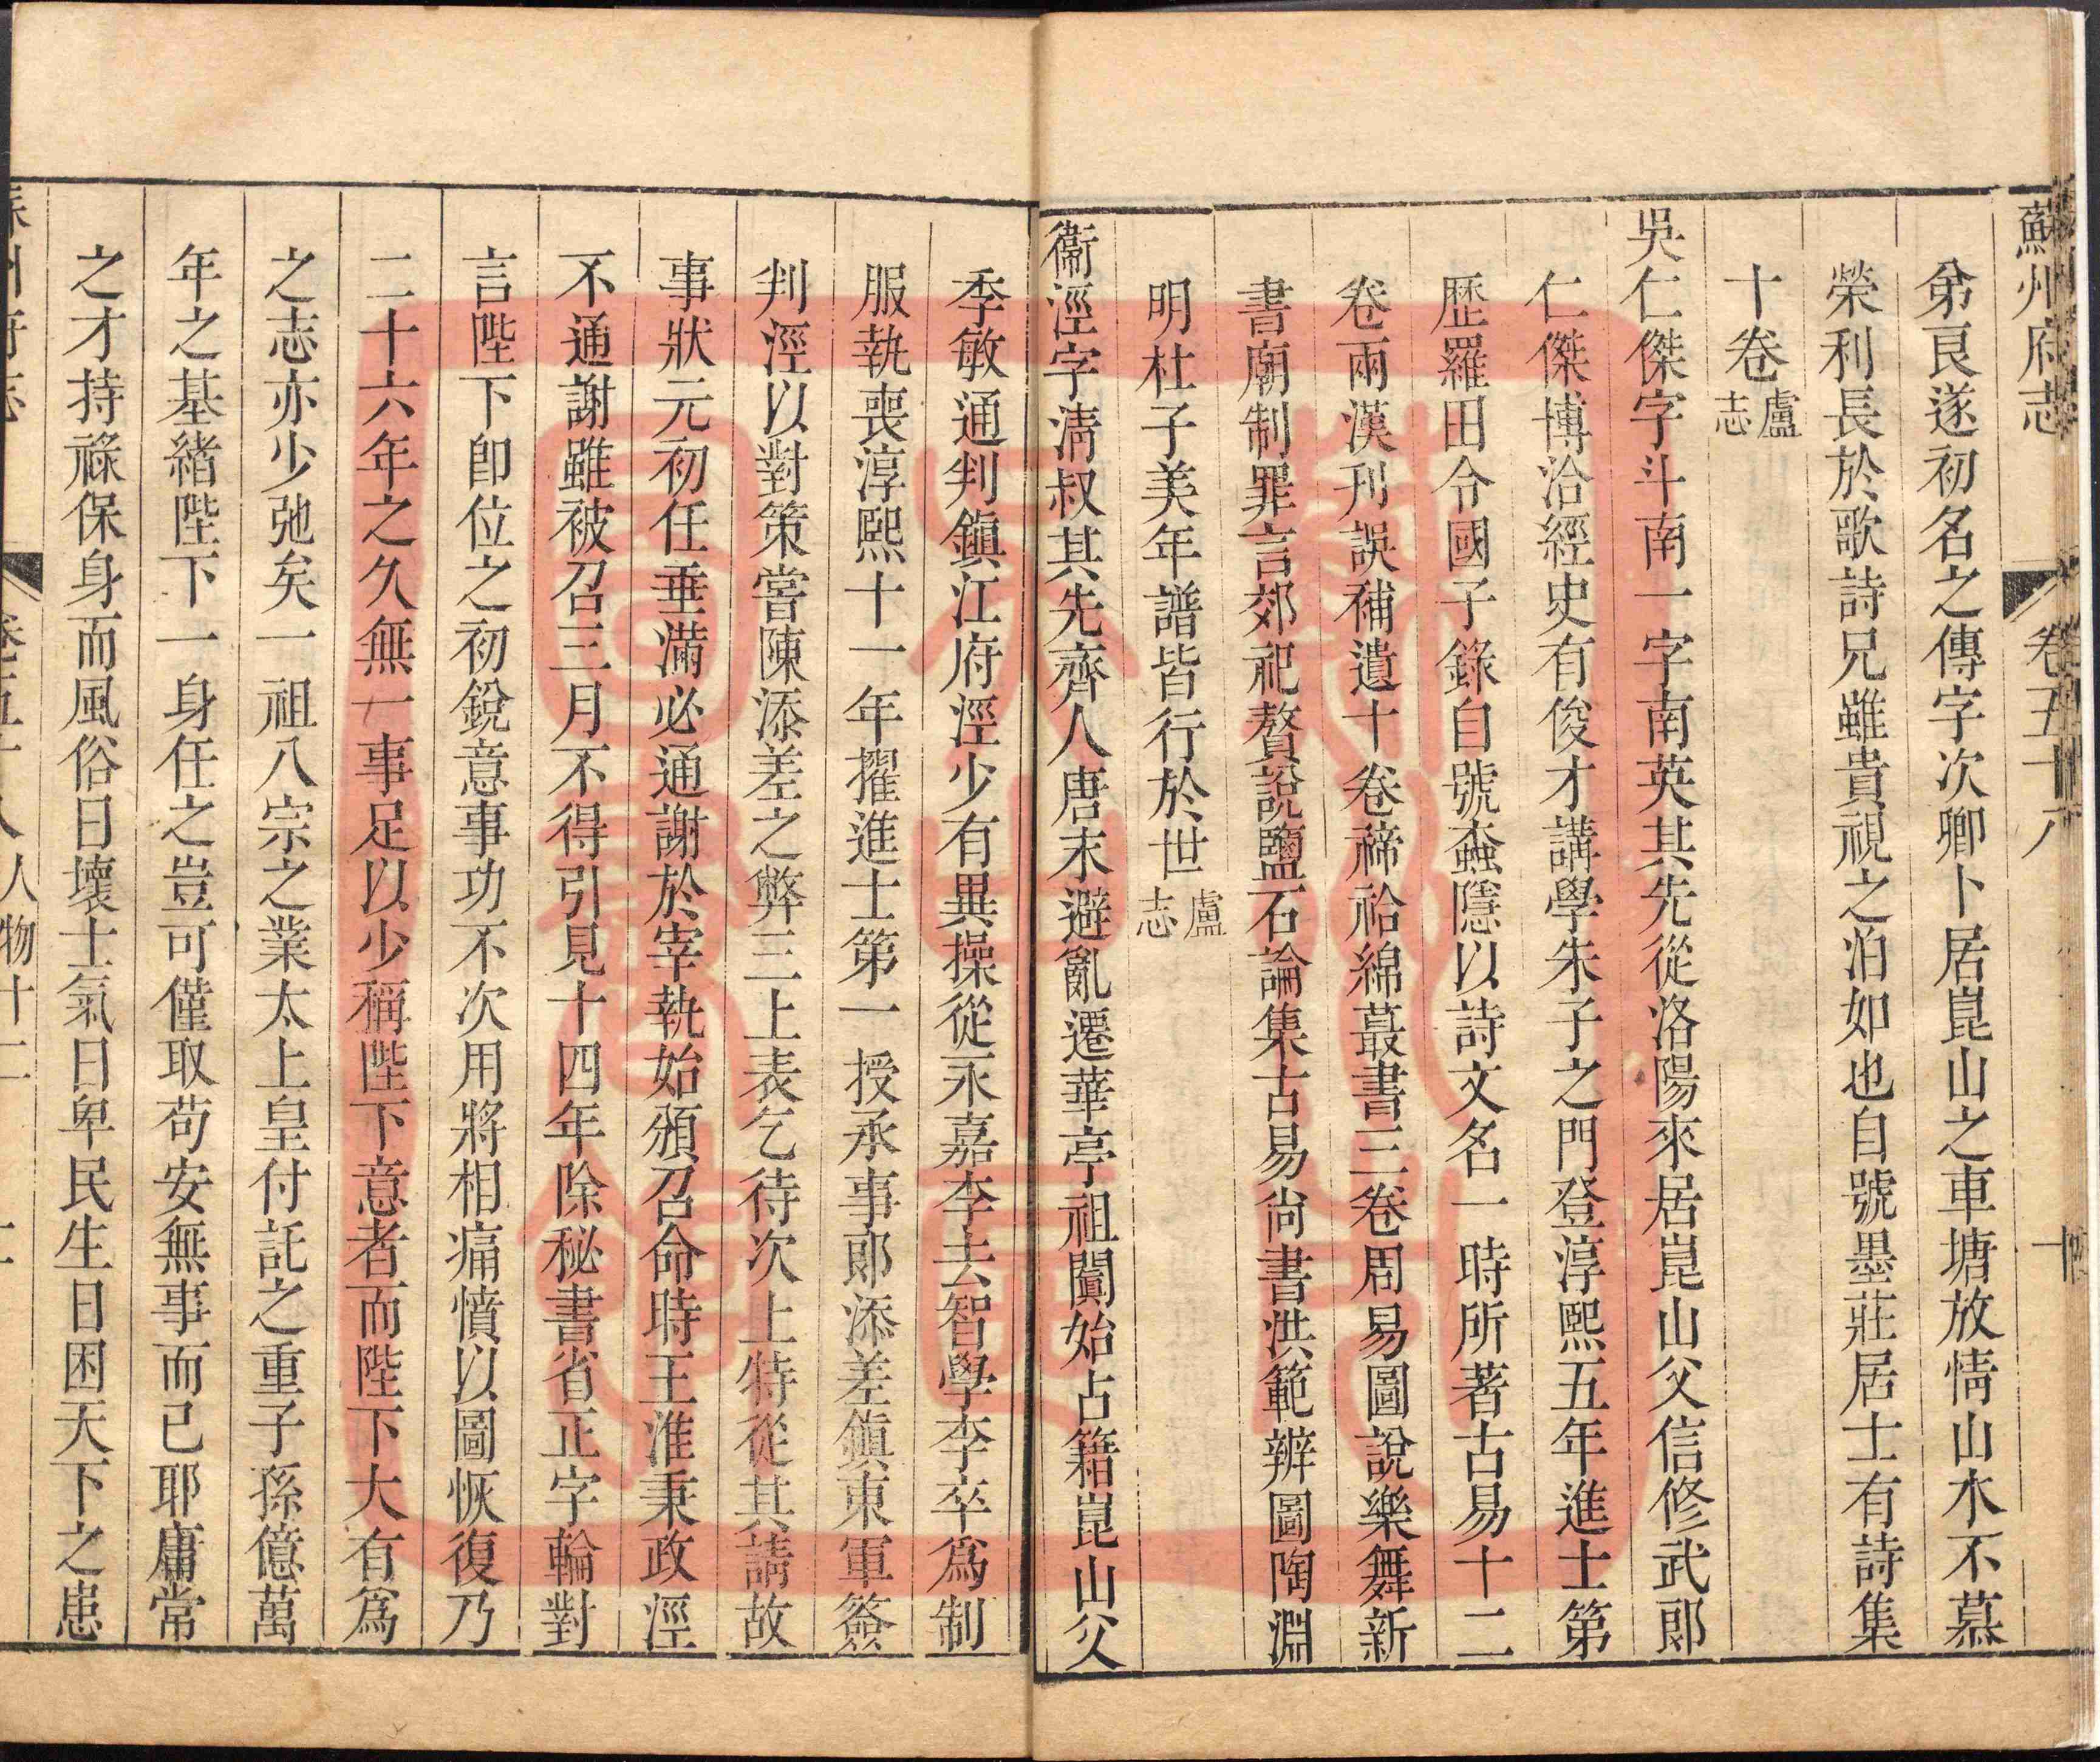 蘇州府志 卷五十八 十
弟艮遂初名之傳字次卿卜居崑山之車塘放情山水不慕
榮利長於歌詩兄雖貴視之泊如也自號墨莊居士有詩集
十卷盧志
吳仁傑字斗南一字南英其先從洛陽來居崑山父信修武郎
仁傑博洽經史有俊才講學朱子之門登淳熙五年進士第
歷羅田令國子錄自號螙隱以詩文名一時所著古易十二
卷兩漢刋誤補遺十卷禘祫綿蕞書三卷周易圖說樂舞新
書廟制罪言郊祀贅說鹽石論集古易尚書洪範辨圖陶淵
明杜子美年譜皆行於世盧志
衞涇字淸叔其先齊人唐末避亂遷華亭祖闐始占籍崑山父
季敏通判鎭江府涇少有異操從永嘉李去智學李卒爲制
服執喪淳熙十一年擢進士第一授承事郎添差鎭東軍簽
判涇以對策嘗陳添差之弊三上表乞待次上特從其請故
事狀元初任垂滿必通謝於宰執始頒召命時王淮秉政涇
不通謝雖被召三月不得引見十四年除秘書省正字輪對
言陛下卽位之初銳意事功不次用將相痛憤以圖恢復乃
二十六年之久無一事足以少稱陛下意者而陛下大有爲
之志亦少弛矣一祖八宗之業太上皇付託之重子孫億萬
年之基緖陛下一身任之豈可僅取苟安無事而已耶庸常
之才持祿保身而風俗日壞士氣日卑民生日困天下之患
人物十二